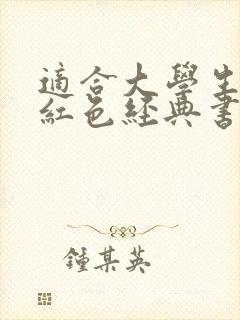 適合大學生
紅色經典書
鍾某英